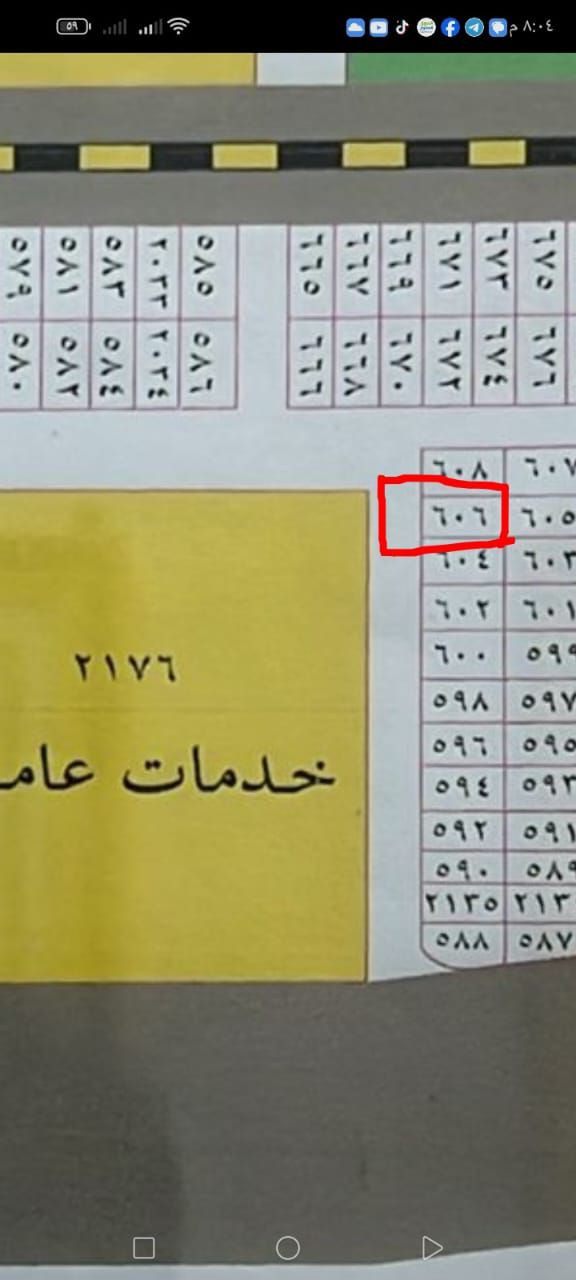 ٥٩
٨:٠٤ م
٥٧٩ ٥٨١ ٥٨٣ ٢٠٣٣ ٥٨٥ ٦٦٥ ٦٦٧ ٦٦٩ ٦٧١ ٦٧٣ ٦٧٥
٥٨٠ ٥٨٢ ٥٨٤ ٢٠٣٤ ٥٨٦ ٦٦٦ ٦٦٨ ٦٧٠ ٦٧٢ ٦٧٤ ٦٧٦
٦٠٨ ٦٠٧
٦٠٦ ٦٠٥
٦٠٤ ٦٠٣
٦٠٢ ٦٠١
٦٠٠ ٥٩٩
٥٩٨ ٥٩٧
٥٩٦ ٥٩٥
٥٩٤ ٥٩٣
٥٩٢ ٥٩١
٥٩٠ ٥٨٩
٢١٣٥ ٢١٣
٥٨٨ ٥٨٧
٢١٧٦
خدمات عام